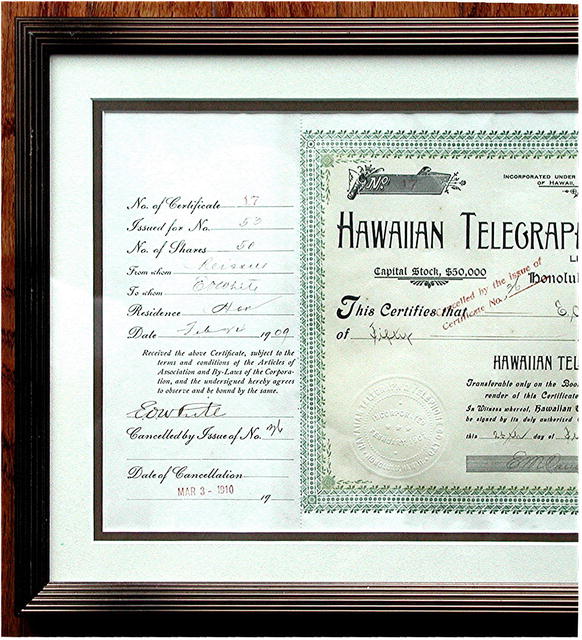 No. of Certificate 17
Issued for No. 53
No. of Shares 50
From whom Reissue
To whom E O White
Residence Hon
Date 1909
Received the above Certificate, subject to the
terms and conditions of the Articles of
Association and By-Laws of the Corpora-
tion, and the undersigned hereby agrees
to observe and be bound by the same.
E O White
Cancelled by Issue of No. 26
Date of Cancellation
MAR 3 - 1910
19
No. 17
INCORPORATED UNDER
OF HAWAII
HAWAIIAN TELEGRAP
LI
Capital Stock, $50,000
Honolu
Cancelled by the issue of
Certificate No. 26
This Certifies that E.O
of Fifty
HAWAIIAN TEL
Transferable only on the Boo
render of this Certificate
In Witness whereof, Hawaiian
be signed by its duly authorized
this day of